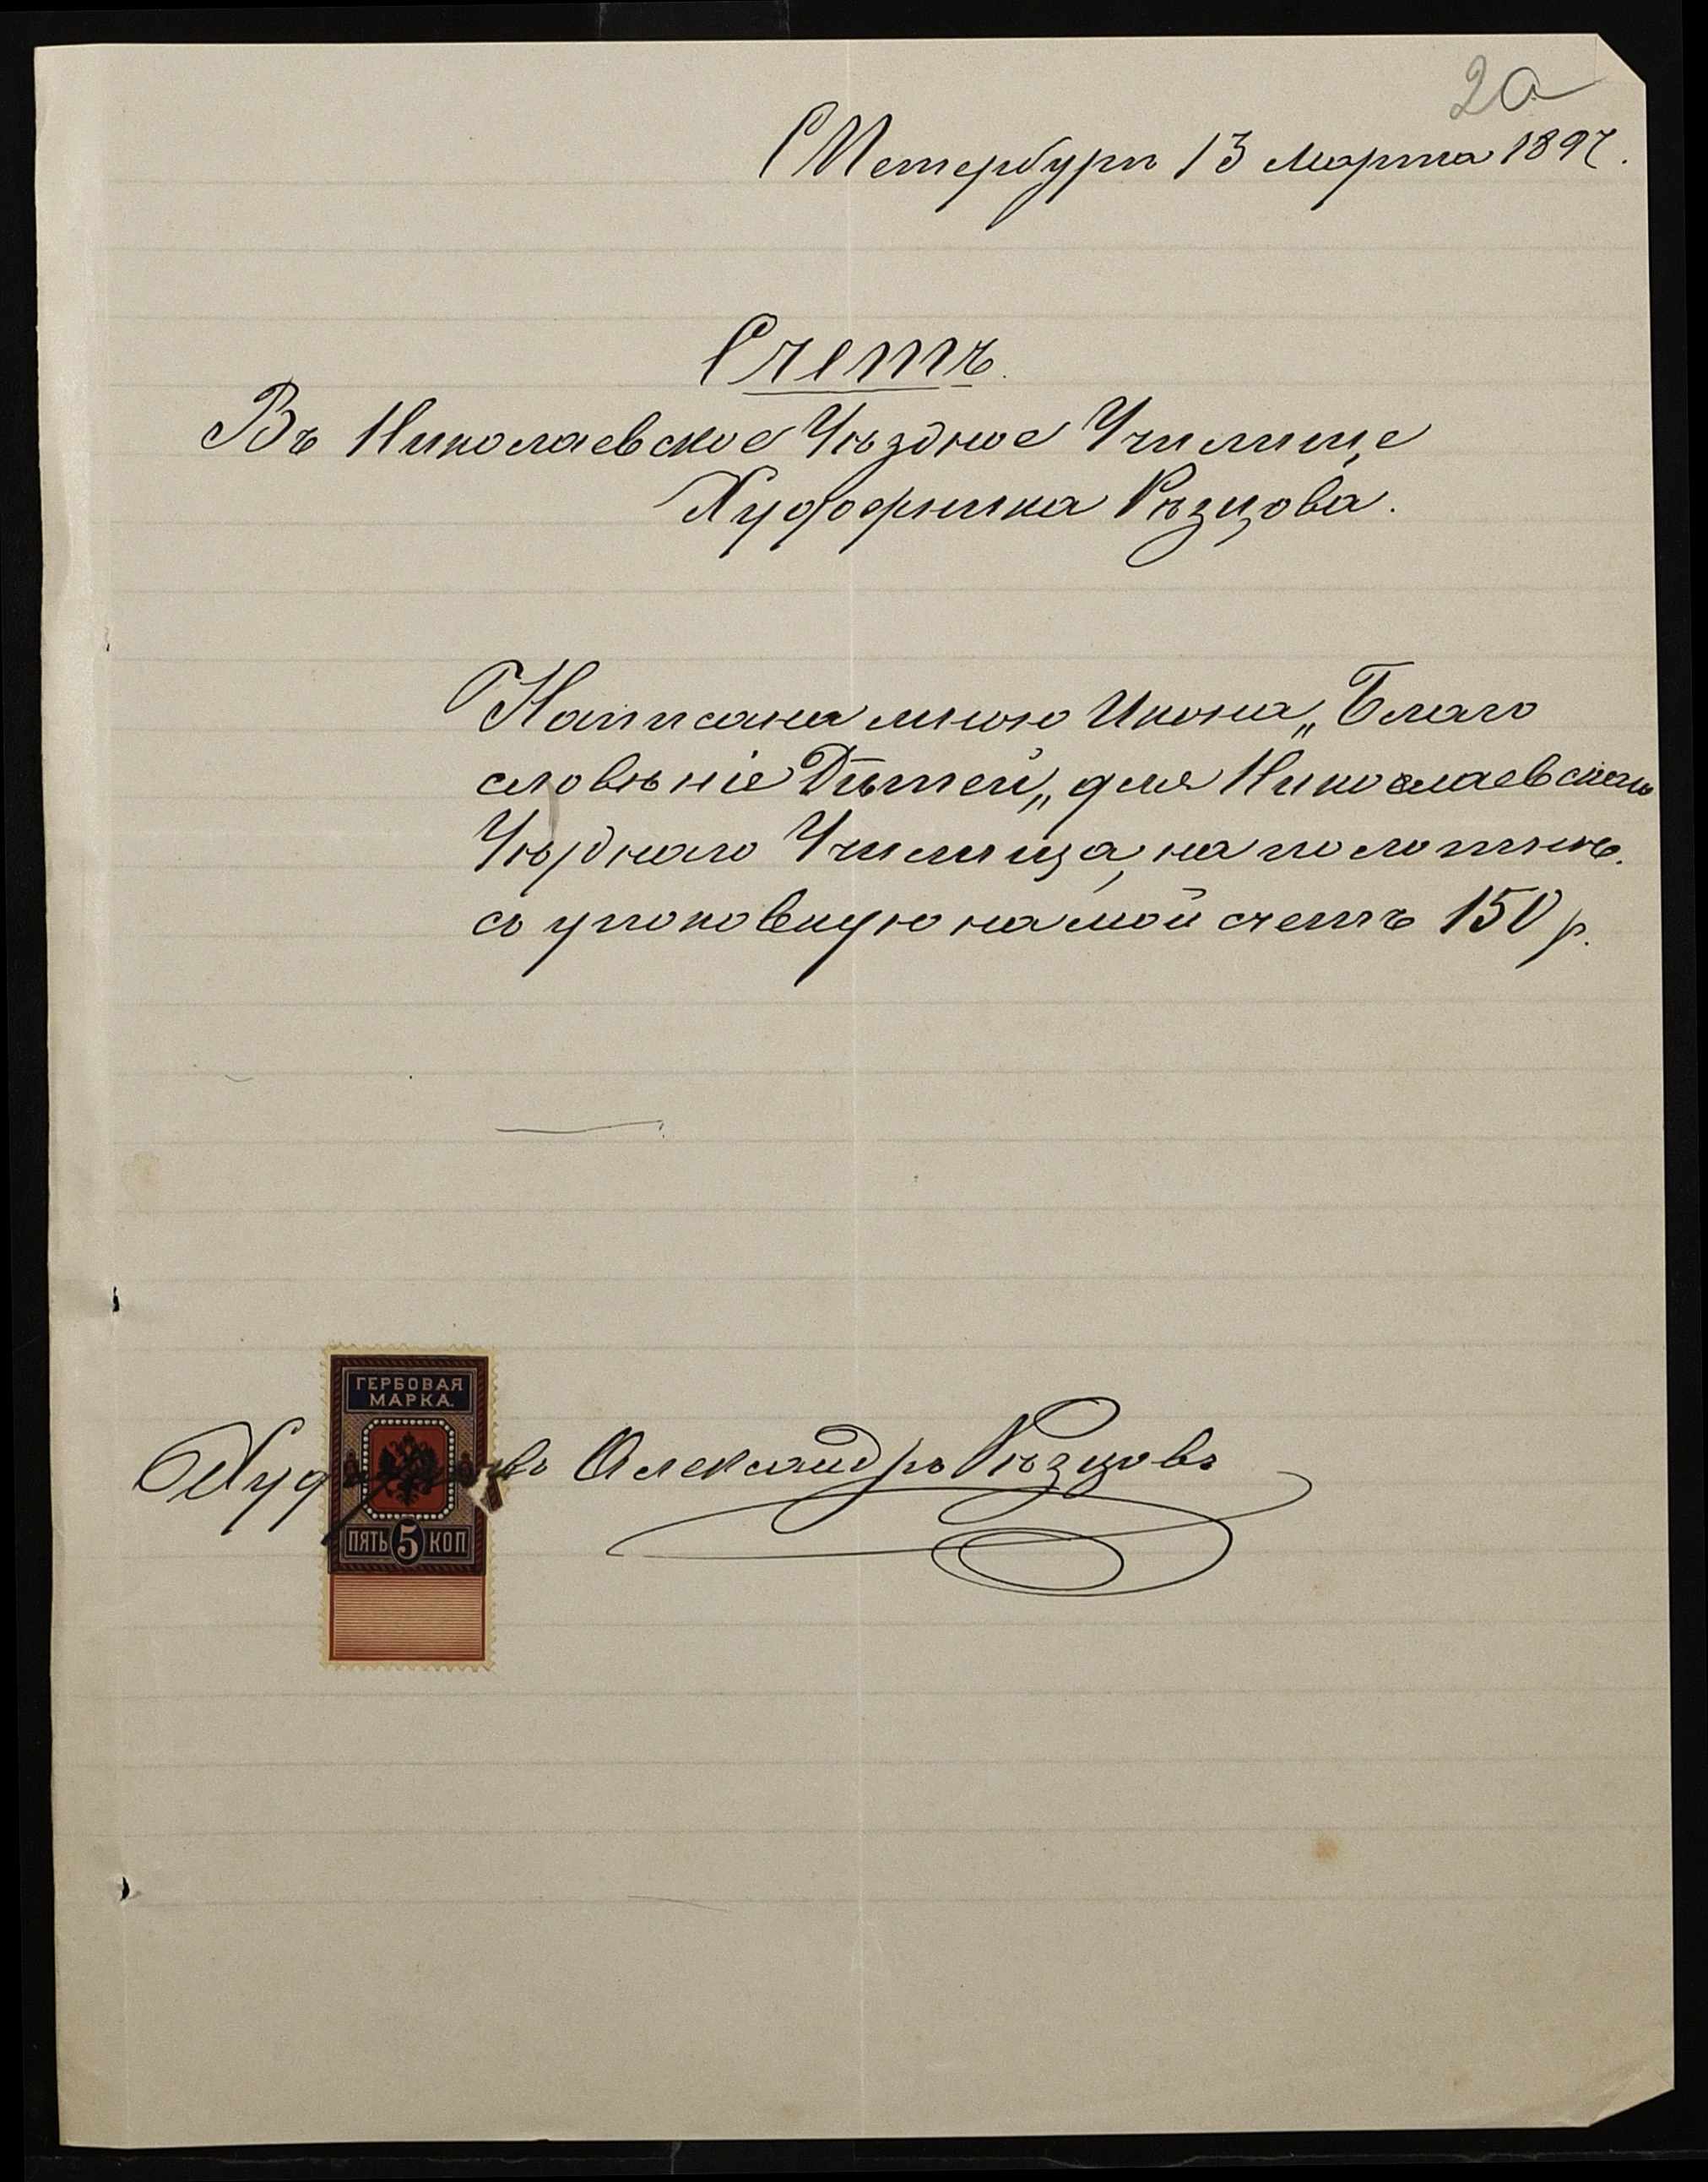 2а
СПетербургъ 13 Марта 1897.
Счетъ.
Въ Николаевское Уѣздное Училище
Художника Рѣзцова.
Написана мною Икона „Благо
словѣніе Дѣтей„ для Николаевскаго
Уѣзднаго Училища, на полотнѣ.
съ упоковкую на мой счетъ 150 р.
ГЕРБОВАЯ
МАРКА.
Александръ Рѣзцовъ
ПЯТЬ 5 КОП